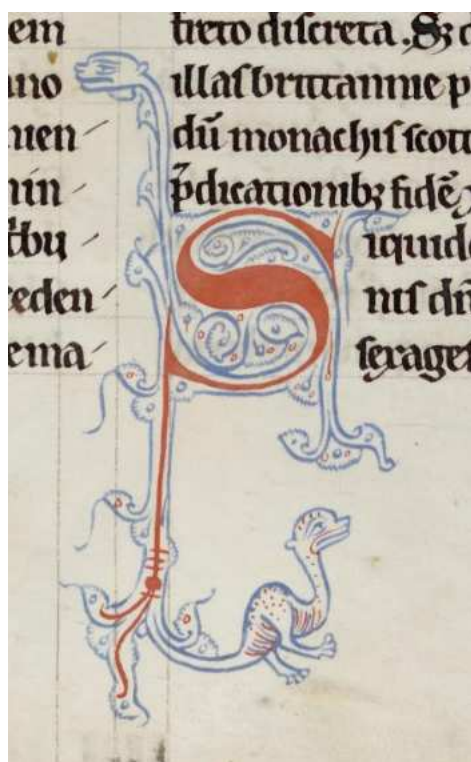 em
nien
nin
ceden
ema
freto diſcreta. Sꝫ
illaſ brittannie p
dū monachiſ ſcott
p̄dicationibꝫ fidē
Siquid
ſexageſ